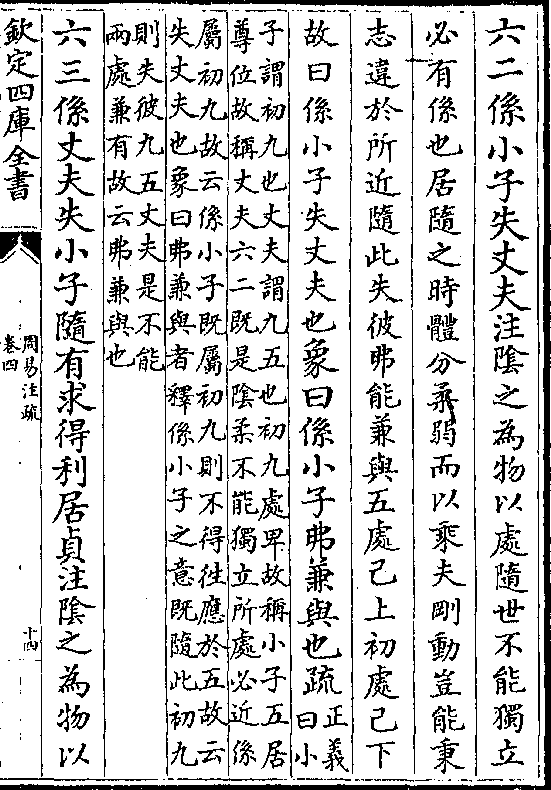 六二係小子失丈夫注陰之為物以處隨世不能獨立
必有係也居隨之時體分柔弱而以乘夫剛動豈能秉
志違於所近隨此失彼弗能兼與五處己上初處己下
故曰係小子失丈夫也象曰係小子弗兼與也疏正義
曰小
子謂初九也丈夫謂九五也初九處卑故稱小子五居
尊位故稱丈夫六二既是陰柔不能獨立所處必近係
屬初九故云係小子既屬初九則不得往應於五故云
失丈夫也象曰弗兼與者釋係小子之意既隨此初九
則失彼九五丈夫是不能
兩處兼有故云弗兼與也
六三係丈夫失小子隨有求得利居貞注陰之為物以
欽定四庫全書
周易注疏
卷四
十四